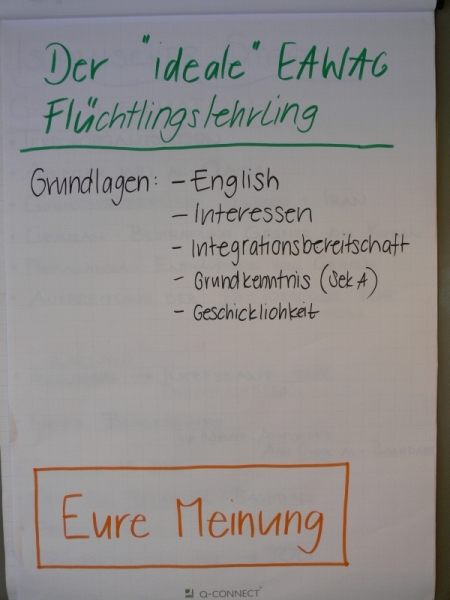 Der "ideale" EAWAG
Flüchtlingslehrling
Grundlagen: - English
- Interessen
- Integrationsbereitschaft
- Grundkenntnis (Sek A)
- Geschicklichkeit
Eure Meinung
Q-CONNECT